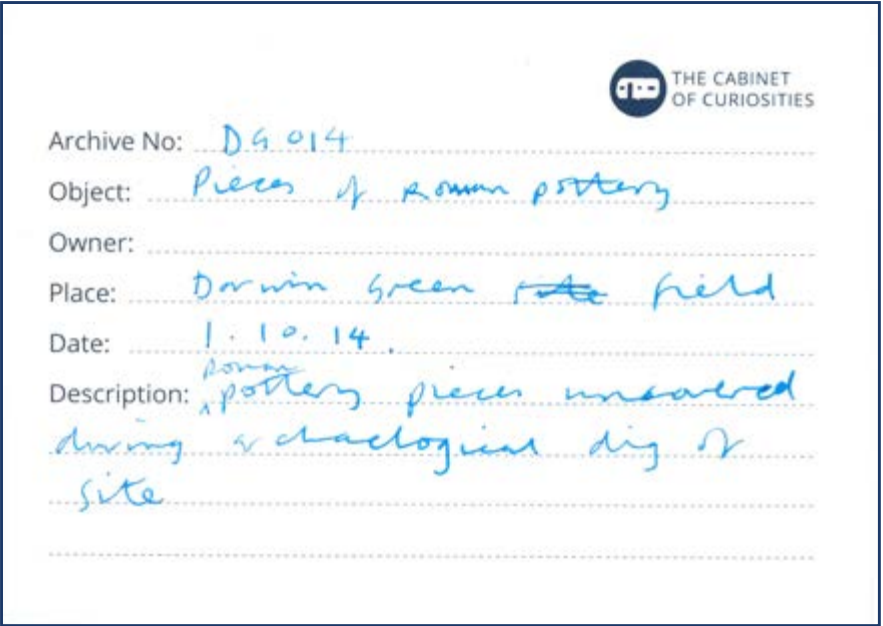 THE CABINET
OF CURIOSITIES
Archive No: DG 014
Object: Pieces of Roman pottery
Owner:
Place: Darwin Green site field
Date: 1.10.14.
Roman
Description: pottery pieces uncovered
during archaelogical dig of
site